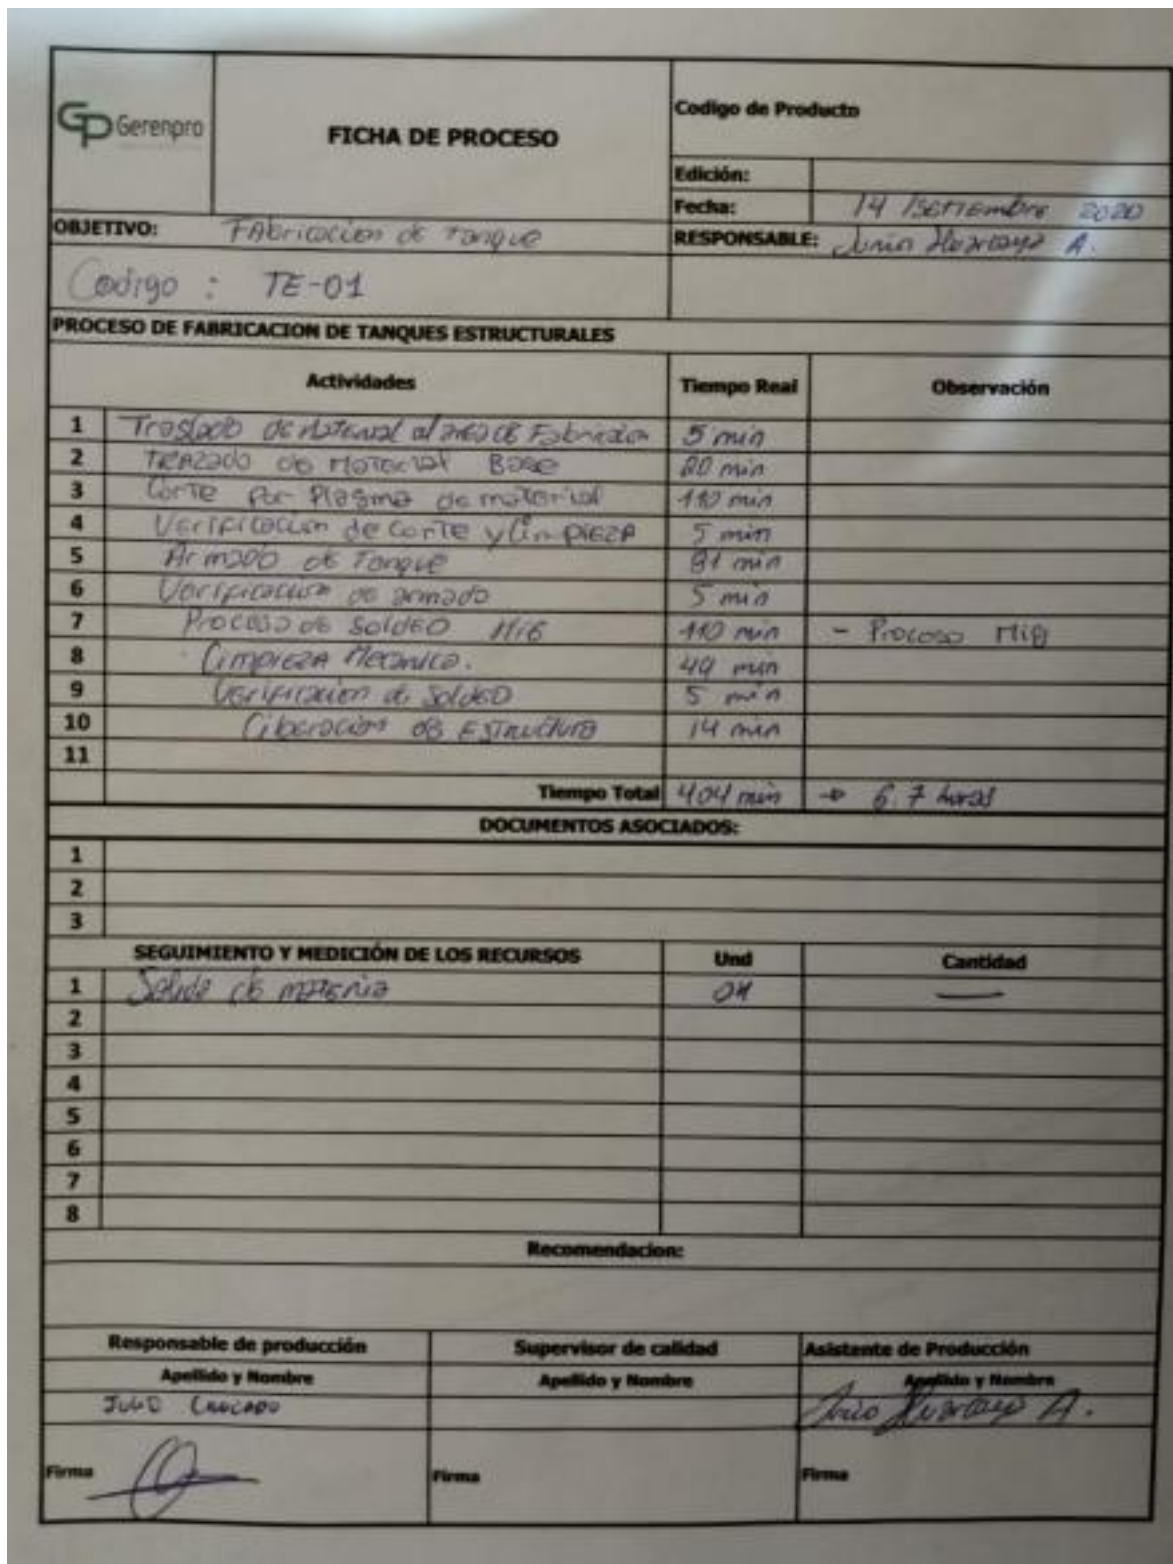 GP Gerenpro
FICHA DE PROCESO
Codigo de Producto
Edición:
Fecha: 14 /Setiembre 2020
OBJETIVO: Fabricación de Tanque
RESPONSABLE: A.
Codigo : TE-01
PROCESO DE FABRICACION DE TANQUES ESTRUCTURALES
Actividades Tiempo Real Observación
1 Traslado de material al area de Fabricación 5 min
2 Trazado de Material Base 20 min
3 Corte por Plasma de material 110 min
4 Verificación de Corte y limpieza 5 min
5 Armado de Tanque 81 min
6 Verificación de armado 5 min
7 Proceso de Soldeo Mig 110 min - Proceso Mig
8 Limpieza Mecanica. 49 min
9 Verificacion de Soldeo 5 min
10 Liberación de Estructura 14 min
11
Tiempo Total 404 min → 6.7 horas
DOCUMENTOS ASOCIADOS:
1
2
3
SEGUIMIENTO Y MEDICIÓN DE LOS RECURSOS Und Cantidad
1 Salida de materia —
2
3
4
5
6
7
8
Recomendacion:
Responsable de producción Supervisor de calidad Asistente de Producción
Apellido y Nombre Apellido y Nombre Apellido y Nombre
Julio A.
Firma Firma Firma